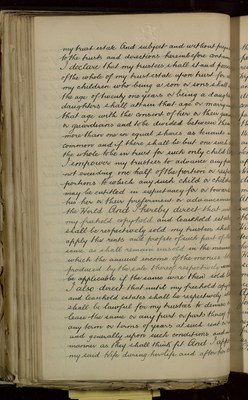 my trust estate And subject and without
to the trusts and directions hereinbefore
I declare that my trustees shall stand
of the whole of my trust estate upon trust for
my children who being a son or sons shall
the age of twenty one years or being a
daughters shall attain that age or marry
that age with the consent of her or their
or guardians and to be divided between them
more than one in equal shares as tenants in
common and if there shall be but one such
the whole to be in trust for such only child
I empower my trustees to advance any
not exceeding one half of the portion or
portions to which any such child or
may be entitled in expectancy for or towards
his her or their preferment or advancement
the World And I hereby direct that
my freehold copyhold and leasehold
shall be respectively sold my trustees shall
apply the rents and profits of such part of the
same as shall remain unsold in the manner
which the annual income of the monies
produced by the sale thereof respectively
be applicable if the same were then sold
I also direct that until my freehold
and leasehold estates shall be respectively
shall be lawful for my trustees to demise
lease the same or any part or parts thereof
any term or terms of years at such rent
and generally upon such conditions and in
manner as they shall think fit And I
my said Wife during her life and after her